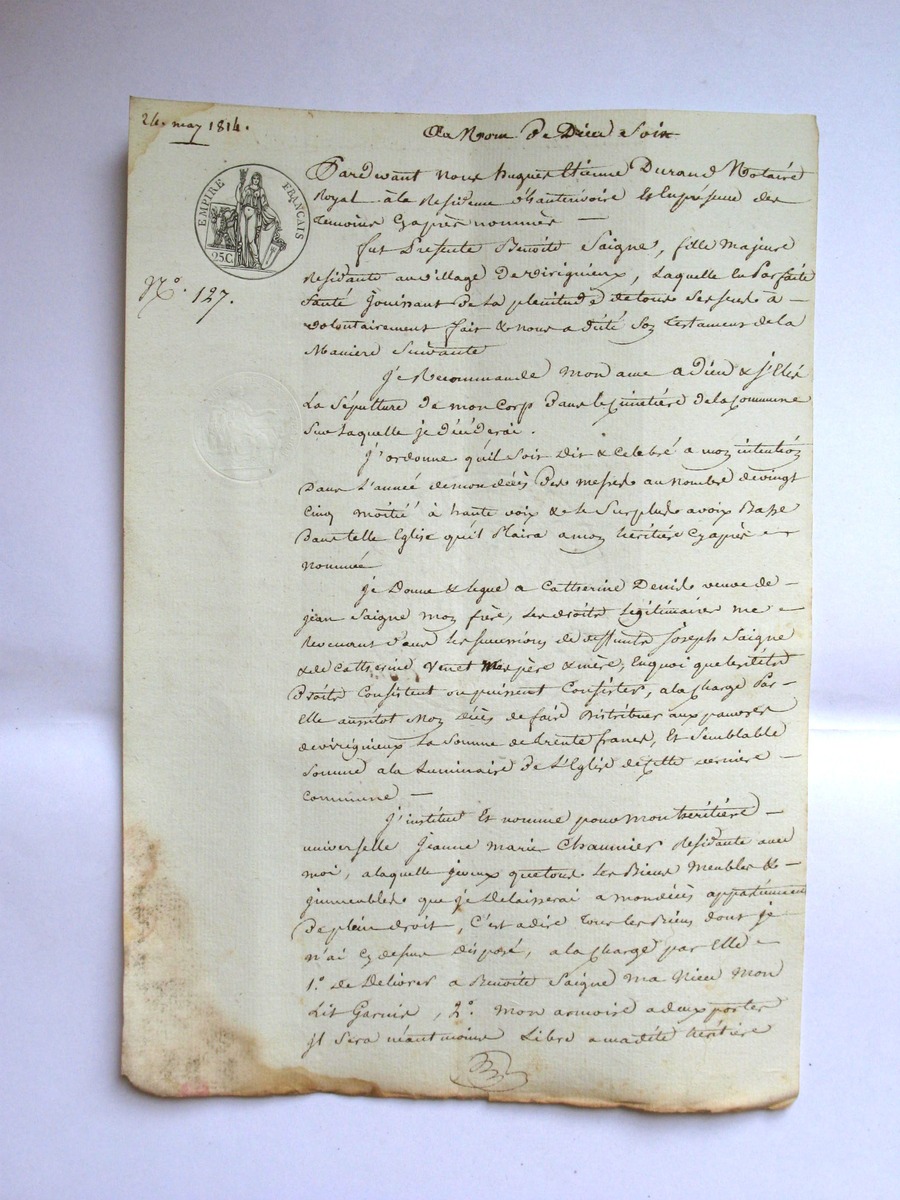 24. may 1814.
Au Nom De Dieu Soit
EMPIRE FRANÇAIS
25C
N.º 127.
Pardevant Nous hugues Etienne Durand Notaire
Royal à la Residence d'hauterivoire Et En presence des
temoins Cy après nommés —
fut Presente Benoite Saigne, fille Majeure
Residante au village De virignieux, Laquelle En Parfaite
Santé jouissant De La plenitude de tous ses sens à —
volontairement fait & nous a dicté Son testament de la
Maniere Suivante
je Recommande Mon ame a Dieu & j'Elis
La Sépulture De mon Corp Dans le Cimetière De la Commune
Sur Laquelle je décéderai.
j'ordonne qu'il Soit Dit & Celebré a mon intention
Dans L'année de mon décès Des Messes au Nombre de vingt
Cinq Moitié à haute voix & le Surplus a voix Basse
Dans telle Eglise qu'il Plaira a mon héritière Cy après —
Nommée
je Donne & legue a Catherine Denis veuve de —
jean Saigne Mon frère, Les droits legitimaires me —
Revenant dans les Successions de deffunts Joseph Saigne
& de Catherine Venet Mes père & mère, En quoi que les dits
Droits Consistent ou puissent Consister, a la Charge Par —
Elle aussitot Mon décès de faire Distribuer aux pauvres
de virignieux La Somme de trente francs, Et Semblable
Somme a la Luminaire De L'Eglise de cette derniere —
Commune —
j'institue Et nomme pour Mon héritière —
universelle Jeanne Marie Chaumier Residante avec
moi, a laquelle je veux que tous les Biens Meubles & —
jmmeubles que je Delaisserai a mon décès appartiennent
De plein droit, C'est a dire tous les Biens dont je
N'ai Cy dessus disposé, a la Charge par Elle —
1.º de Delivrer a Benoite Saigne Ma Niece Mon
Lit Garnis, 2.º Mon armoire a deux portes
jl Sera néantmoins Libre a madite héritière